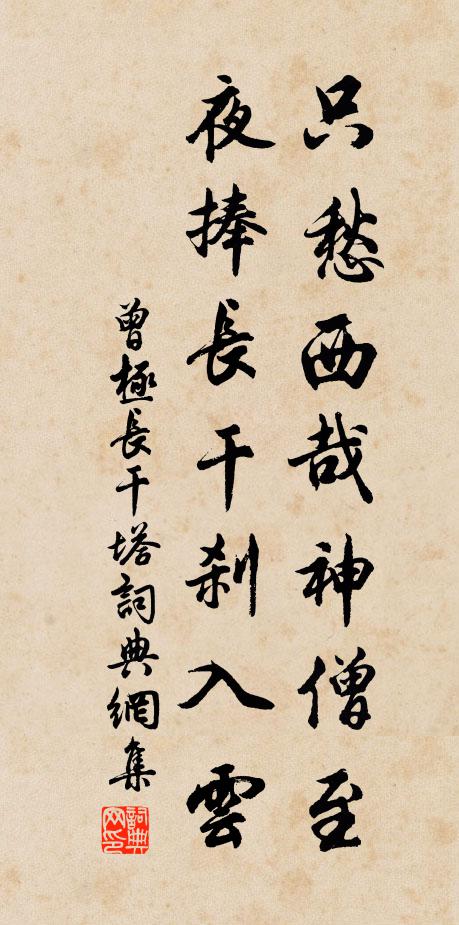 只愁西哉神僧至
夜捧長干刹入雲
曾極長干塔詞典網集
詞典网印